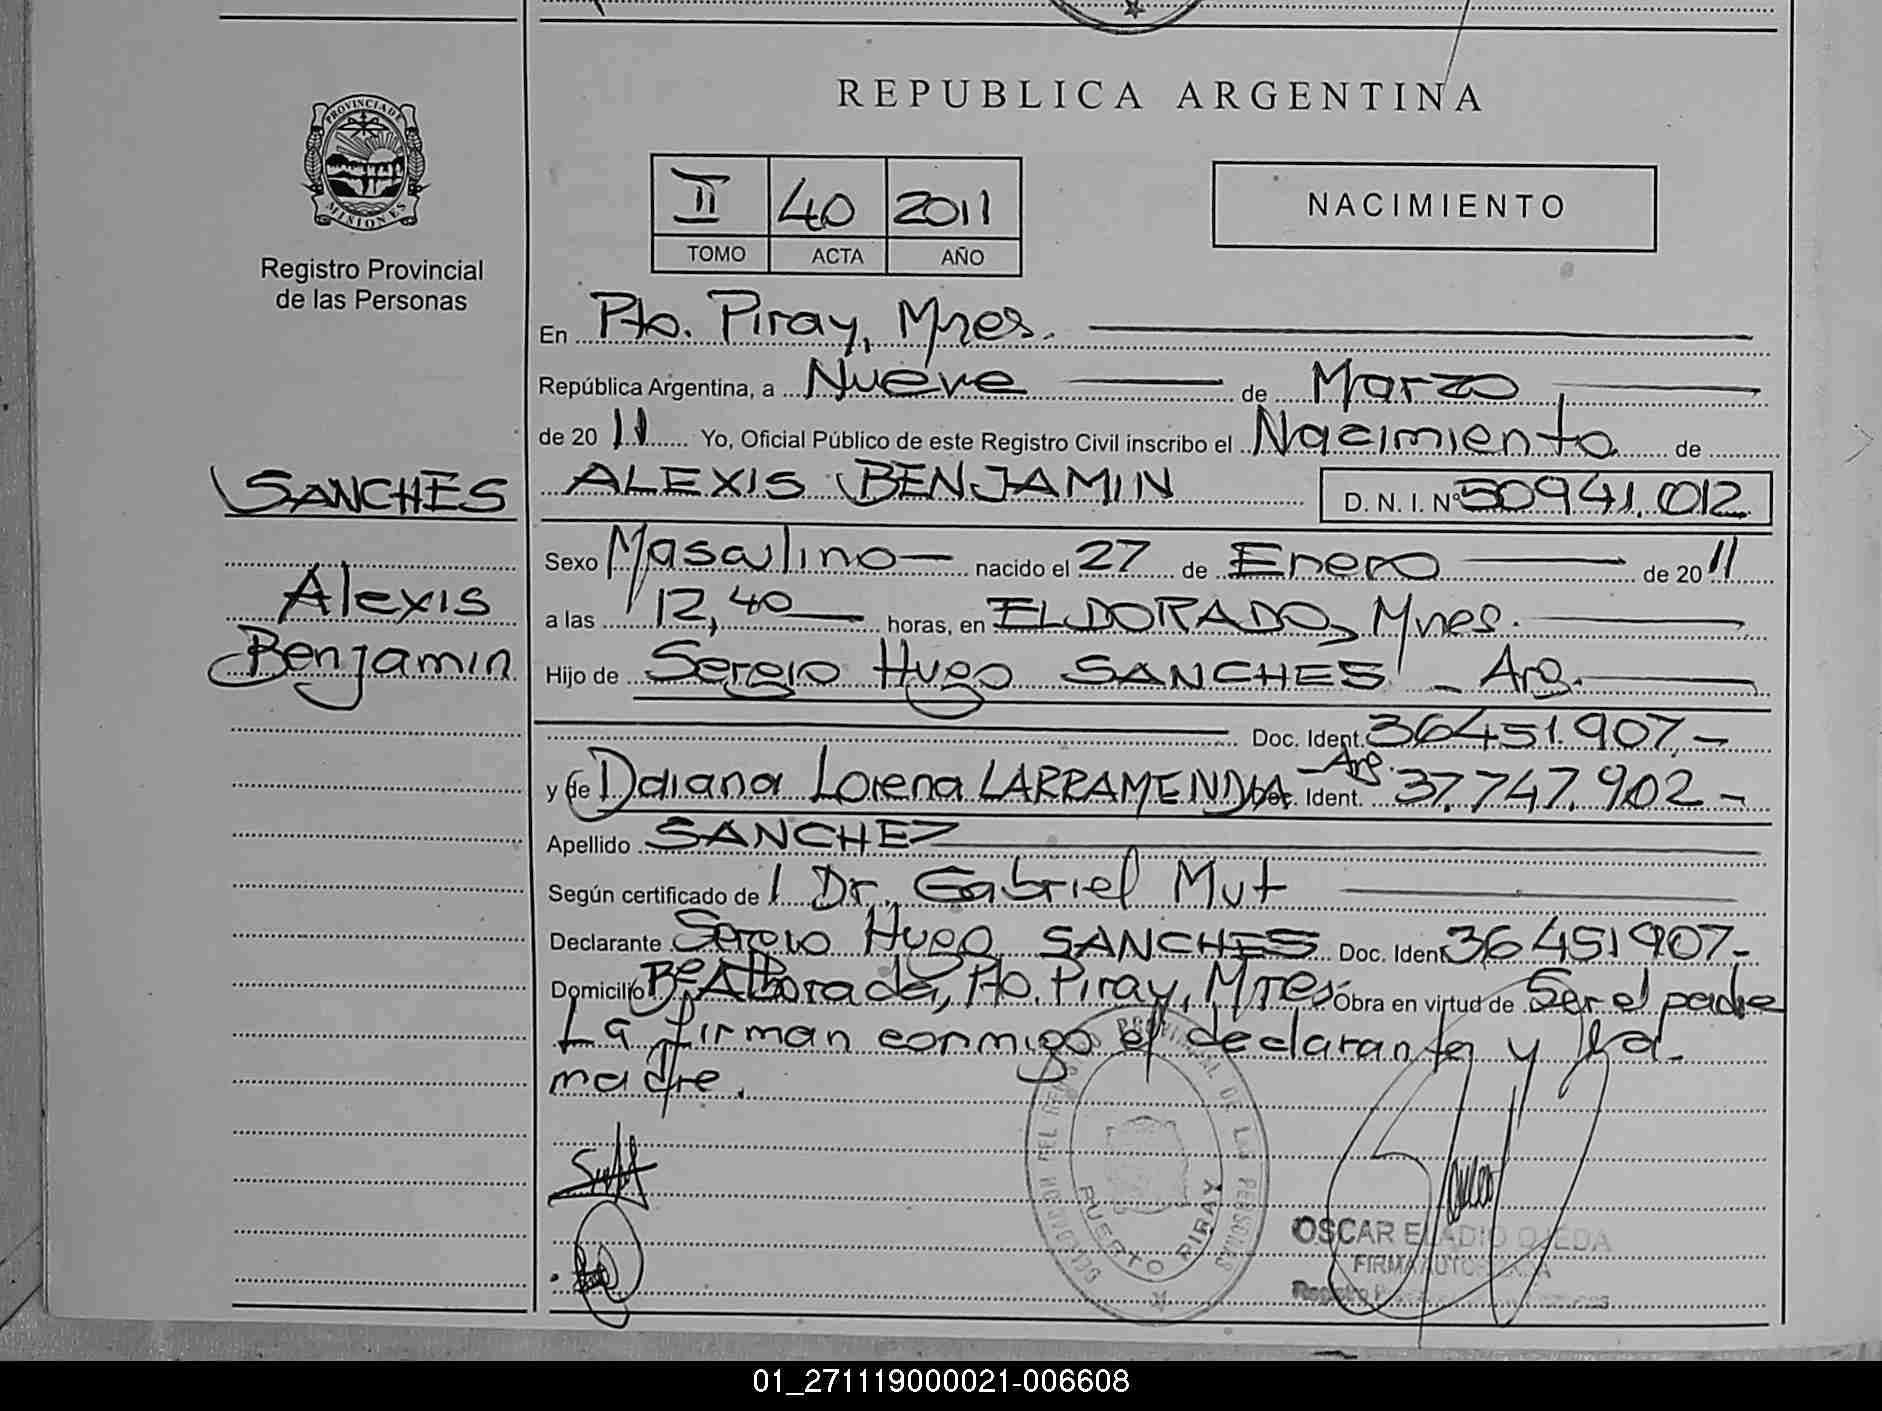 REPUBLICA ARGENTINA
PROVINCIA DE
MISIONES
Registro Provincial
de las Personas
II 40 2011
TOMO ACTA AÑO
NACIMIENTO
En Pto. Piray, Mnes.
República Argentina, a Nueve de Marzo
de 2011 Yo, Oficial Público de este Registro Civil inscribo el Nacimiento de
SANCHES
Alexis
Benjamin
ALEXIS BENJAMIN D. N. I. Nº 50941.012
Sexo Masculino nacido el 27 de Enero de 2011
a las 12,40 horas, en ELDORADO, Mnes.
Hijo de Sergio Hugo SANCHES - Arg.
Doc. Ident. 36451.907.-
y de Daiana Lorena LARRAMENDIA - Arg. Doc. Ident. 37.747.902 -
Apellido SANCHEZ
Según certificado de Dr. Gabriel Mut
Declarante Sergio Hugo SANCHES Doc. Ident. 36451907-
Domicilio Bº Alborada, Pto. Piray, Mnes Obra en virtud de Ser el padre
La firman conmigo el declarante y la
madre.
DELEGACION DEL REGISTRO PROVINCIAL DE LAS PERSONAS
PUERTO PIRAY
OSCAR ELADIO OJEDA
FIRMA AUTORIZADA
01_271119000021-006608